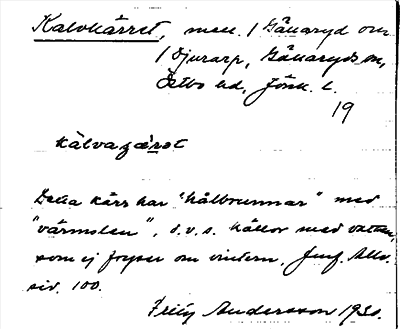 Kalvkärret, mell. 1 Gällaryd och
1 Djurarp, Gällaryds sn,
Östbo hd, Jönk. l.
19
kalvaȝæ̀ret
Detta kärr har "hålbrunnar" med
"värmslen", d.v.s. hålor med vatten,
som ej fryser om vintern. Jmf. Allv.
sid. 100.
Fritz Andersson 1930.